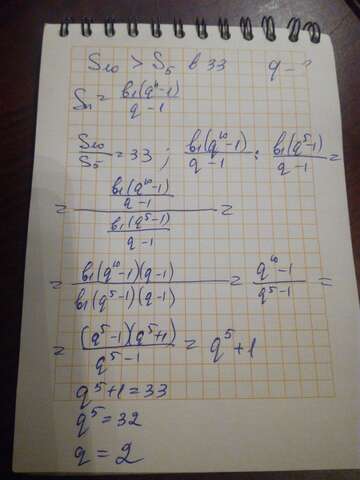 S₁₀ > S₅ в 33 q - ?
Sₙ = b₁(qⁿ-1)/(q-1)
S₁₀/S₅ = 33 ; b₁(q¹⁰-1)/(q-1) : b₁(q⁵-1)/(q-1) =
= (b₁(q¹⁰-1)/(q-1))/(b₁(q⁵-1)/(q-1)) =
= b₁(q¹⁰-1)(q-1)/(b₁(q⁵-1)(q-1)) = (q¹⁰-1)/(q⁵-1) =
= (q⁵-1)(q⁵+1)/(q⁵-1) = q⁵+1
q⁵+1=33
q⁵=32
q = 2